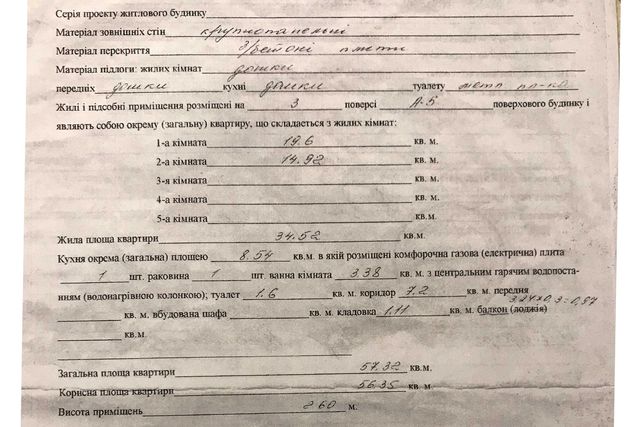 Серія проекту житлового будинку
Матеріал зовнішніх стін крупнопанельні
Матеріал перекриття з/бетоні плити
Матеріал підлоги: жилих кімнат дошки
передніх дошки кухні дошки туалету метл пл-ка
Жилі і підсобні приміщення розміщені на 3 поверсі А-5 поверхового будинку і
являють собою окрему (загальну) квартиру, що складається з жилих кімнат:
1-а кімната 19.6 кв. м.
2-а кімната 14.92 кв. м.
3-я кімната кв. м.
4-а кімната кв. м.
5-а кімната кв. м.
Жила площа квартири 34.52 кв.м.
Кухня окрема (загальна) площею 8.54 кв.м. в якій розміщені комфорочна газова (електрична) плита
1 шт. раковина 1 шт. ванна кімната 3.38 кв. м. з центральним гарячим водопоста-
ниям (водонагрівною колонкою); туалет 1.6 кв. м. коридор 7.2 кв. м. передня
3.24х0,3=0,97
кв. м. вбудована шафа кв. м. кладовка 1.11 кв. м. балкон (лоджія)
кв.м.
Загальна площа квартири 57.32 кв.м.
Корисна площа квартири 56.35 кв. м.
Висота приміщень 260 м.